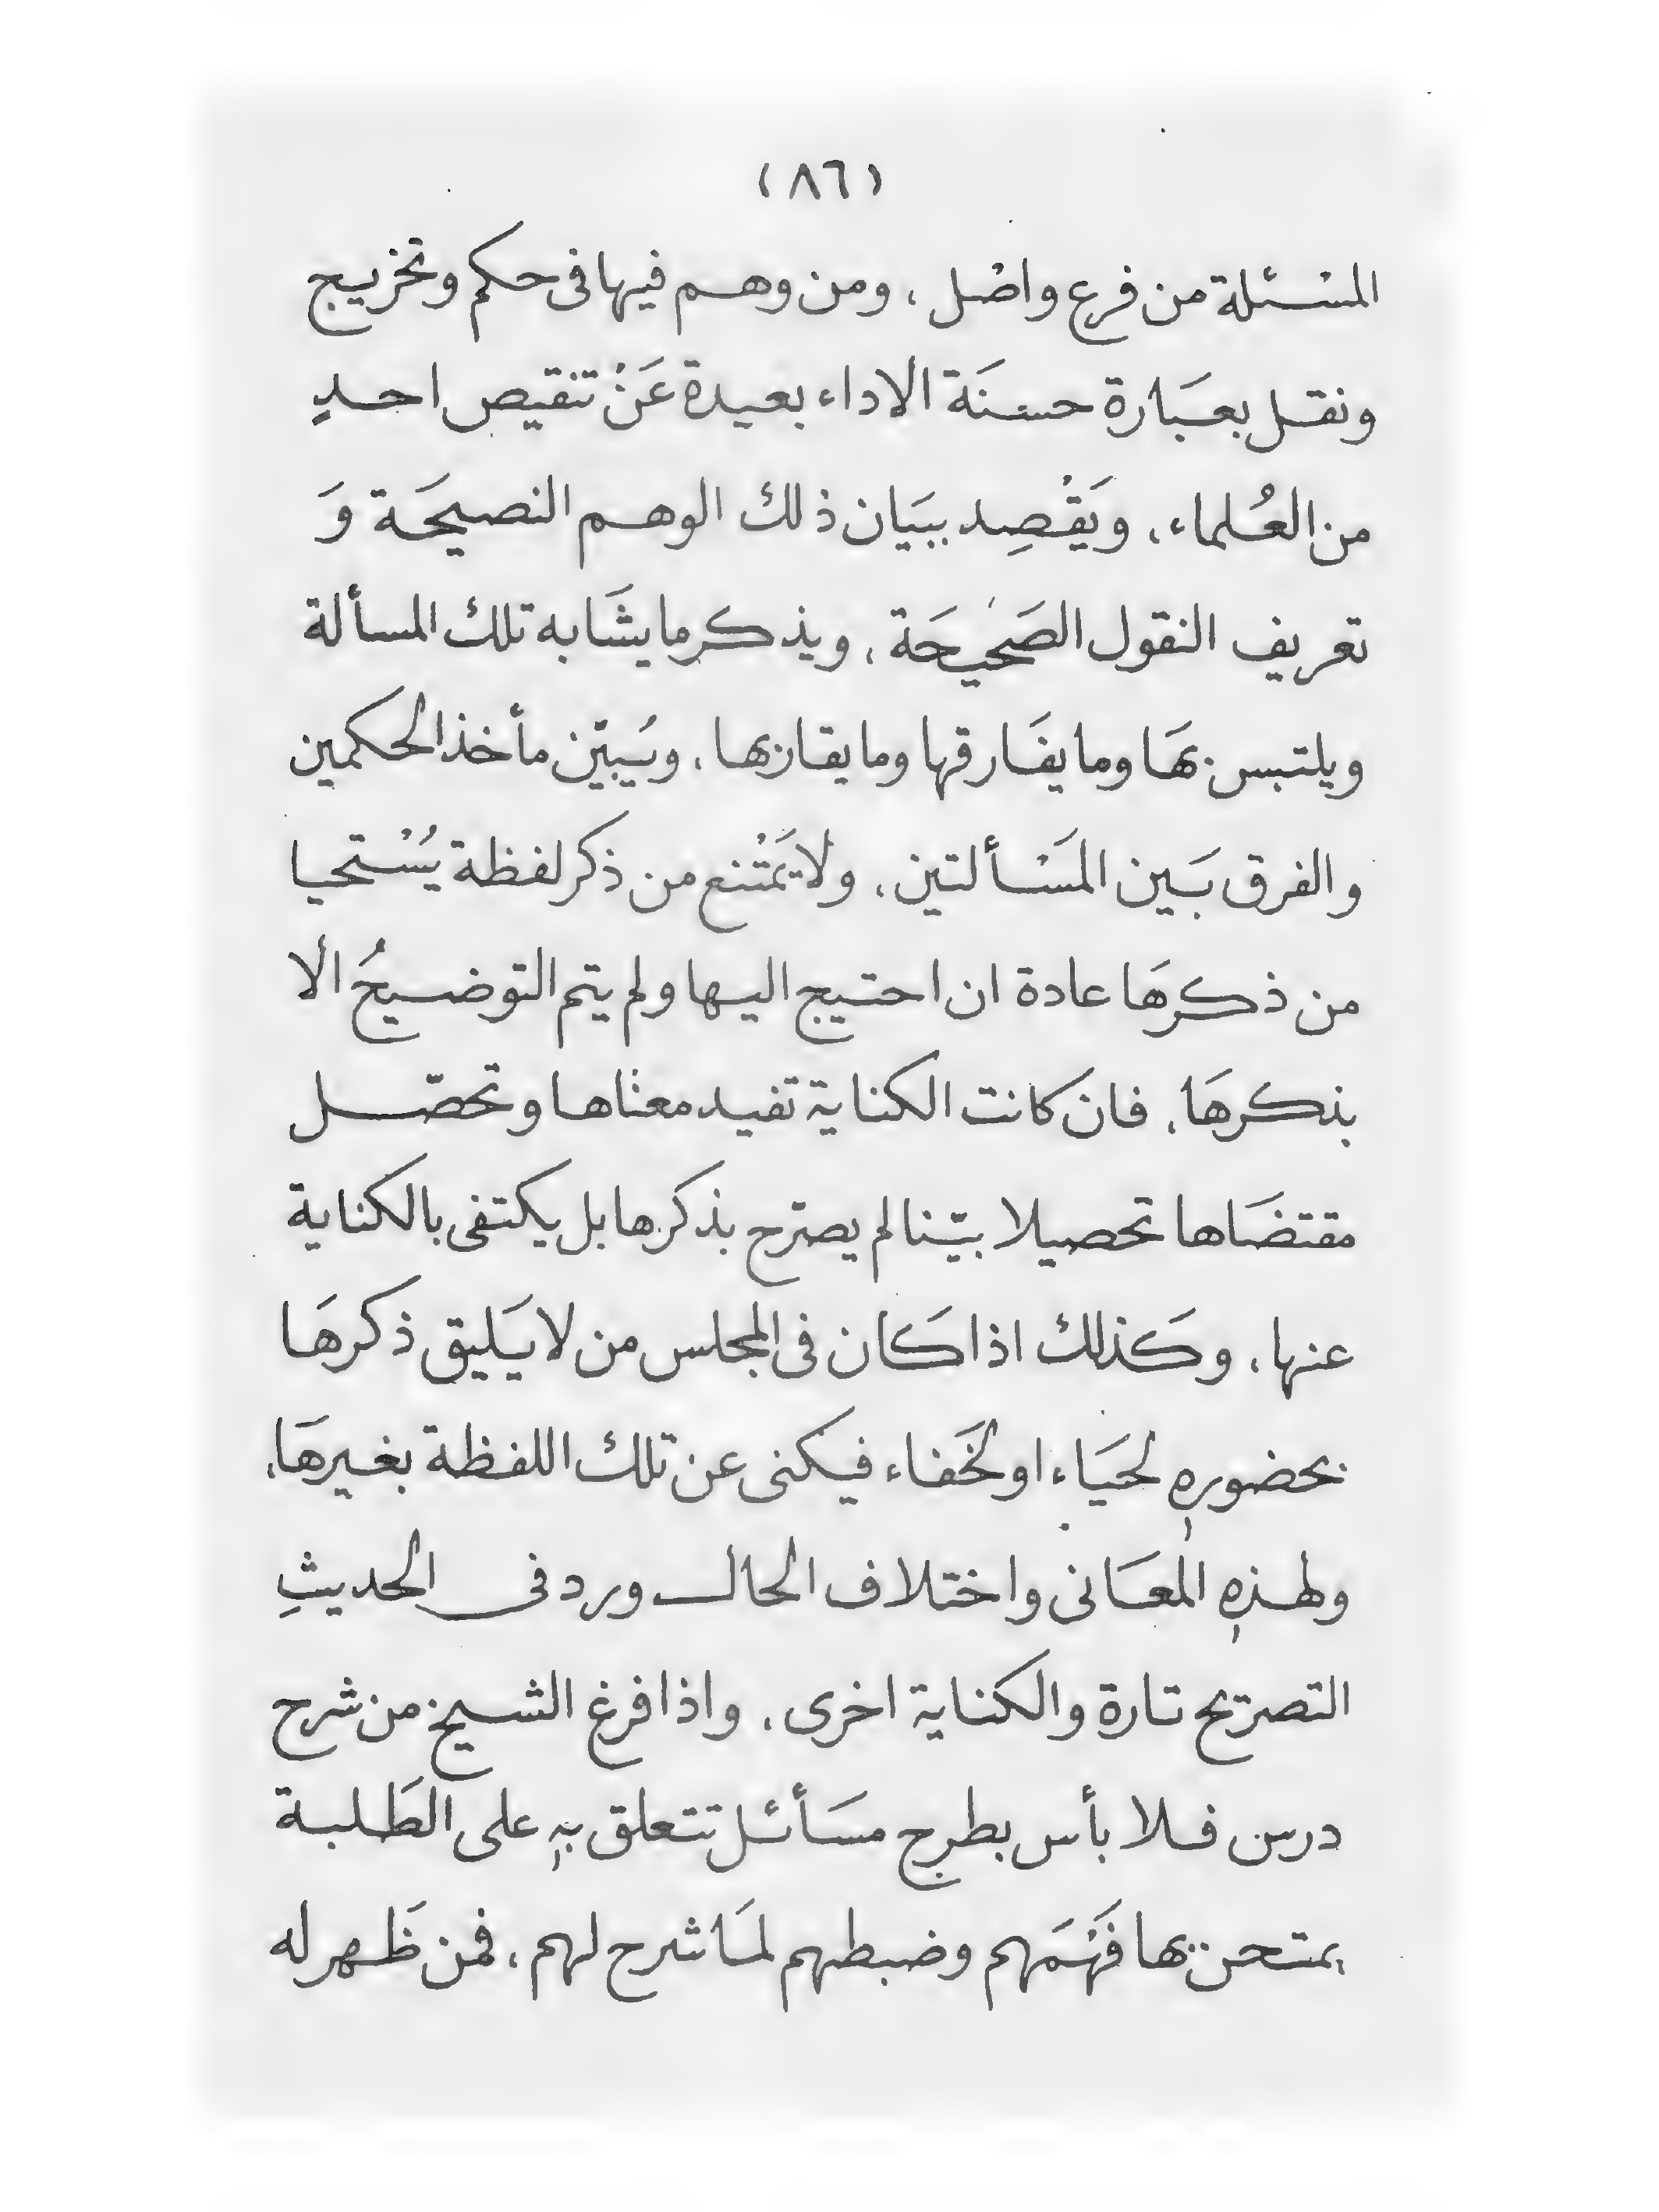 (٨٦)
المسْئلة من فرع واصْل ، ومن وهم فيها فى حكم وتخريج
ونقل بعبَارة حسنَة الاداء بعيدة عَنْ تنقيص احدٍ
من العُلماء ، ويَقْصِد ببيَان ذلك الوهم النصيحَة وَ
تعريف النقول الصَحيحَة ، ويذكر ما يشَابه تلك المسألة
ويلتبس بهَا وما يفَارقها وما يقاربها ، ويبَيّن مأخذ الحكمين
والفرق بَين المَسْألتين ، ولا يَمْتنع من ذكر لفظة يُسْتحيا
من ذكرهَا عادة ان احتيج اليها ولم يتم التوضيحُ الا
بذكرهَا ، فان كانت الكناية تفيد معناها وتحصّل
مقتضَاها تحصيلا بيّنا لم يصرّح بذكرها بل يكتفى بالكناية
عنها ، وكَذلك اذا كَان فى المجلس من لا يَليق ذكرهَا
بحضورهٖ لحيَاء او لخَفاء فيكنى عن تلك اللفظة بغيرهَا ،
ولهذهٖ المعَانى واختلاف الحال ورد فى الحديثِ
التصريح تارة والكناية اخرى ، واذا فرغ الشيخ من شرح
درس فلا بأس بطرح مسَأئل تتعلق بهٖ على الطَلبة
يمتحن بها فَهْمَهم وضبطهم لمَا شرح لهم ، فمن ظَهر له